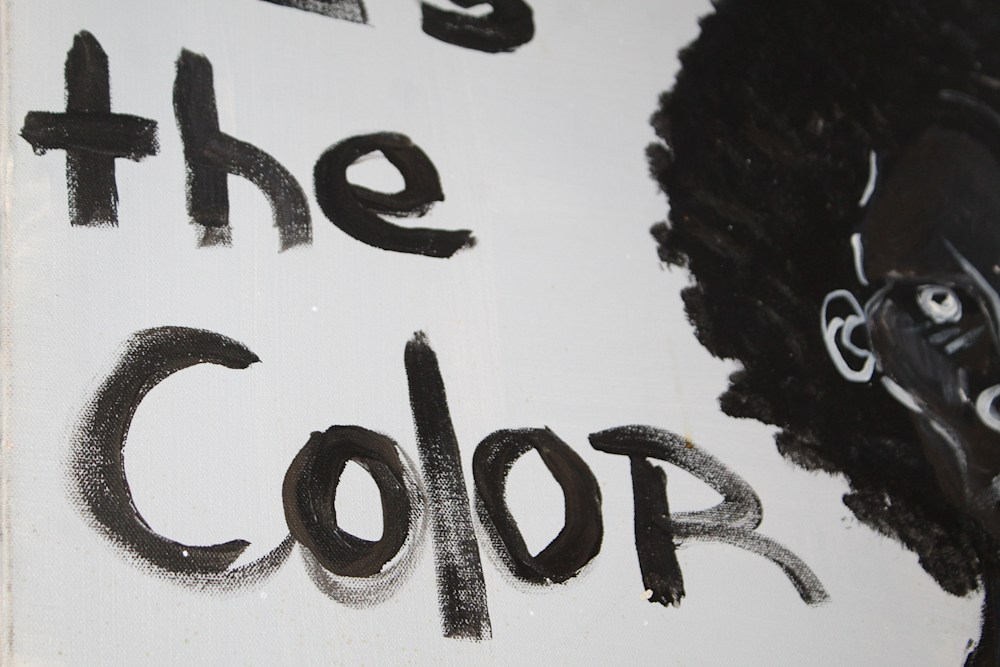 the
ColoR